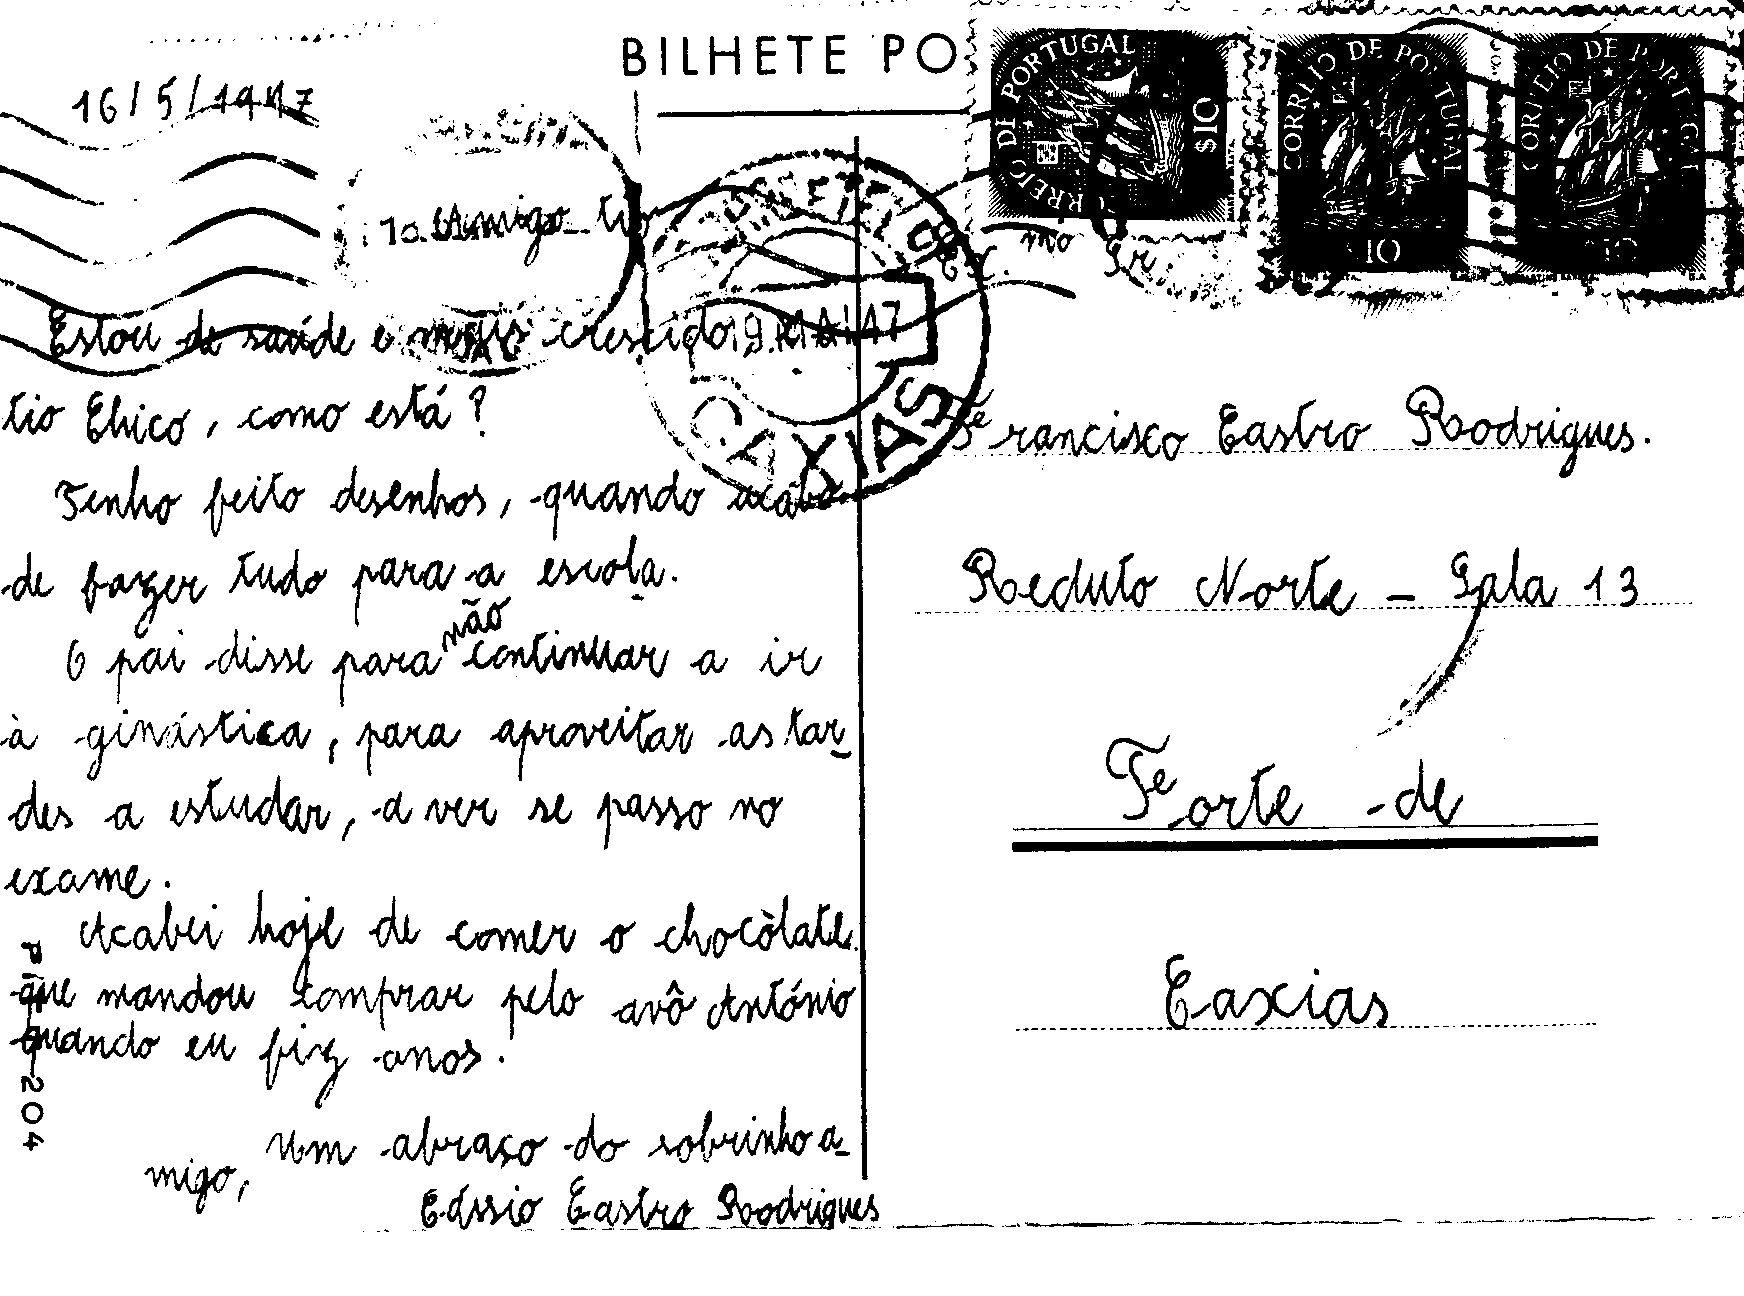 BILHETE PO
16/5/1947
Amigo tio
Estou de saúde e mais crescido,
tio Chico, como está?
Tenho feito desenhos, quando acabo
de fazer tudo para a escola.
não
O pai disse para continuar a ir
à ginástica, para aproveitar as tar-
des a estudar, a ver se passo no
exame.
Acabei hoje de comer o chocòlate
que mandou comprar pelo avô António
quando eu fiz anos.
Um abraço do sobrinho a-
migo,
Cássio Castro Rodrigues
204
CORREIO DE PORTUGAL
$10
CORREIO DE PORTUGAL
$10
CORREIO DE PORTUGAL
$10
19.MAI.47
CAXIAS
Ex.mo Sr.
Francisco Castro Rodrigues.
Reduto Norte - Sala 13
Forte de
Caxias